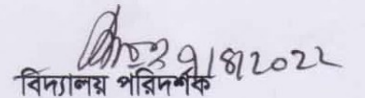 ৭/৪/2022
বিদ্যালয় পরিদর্শক